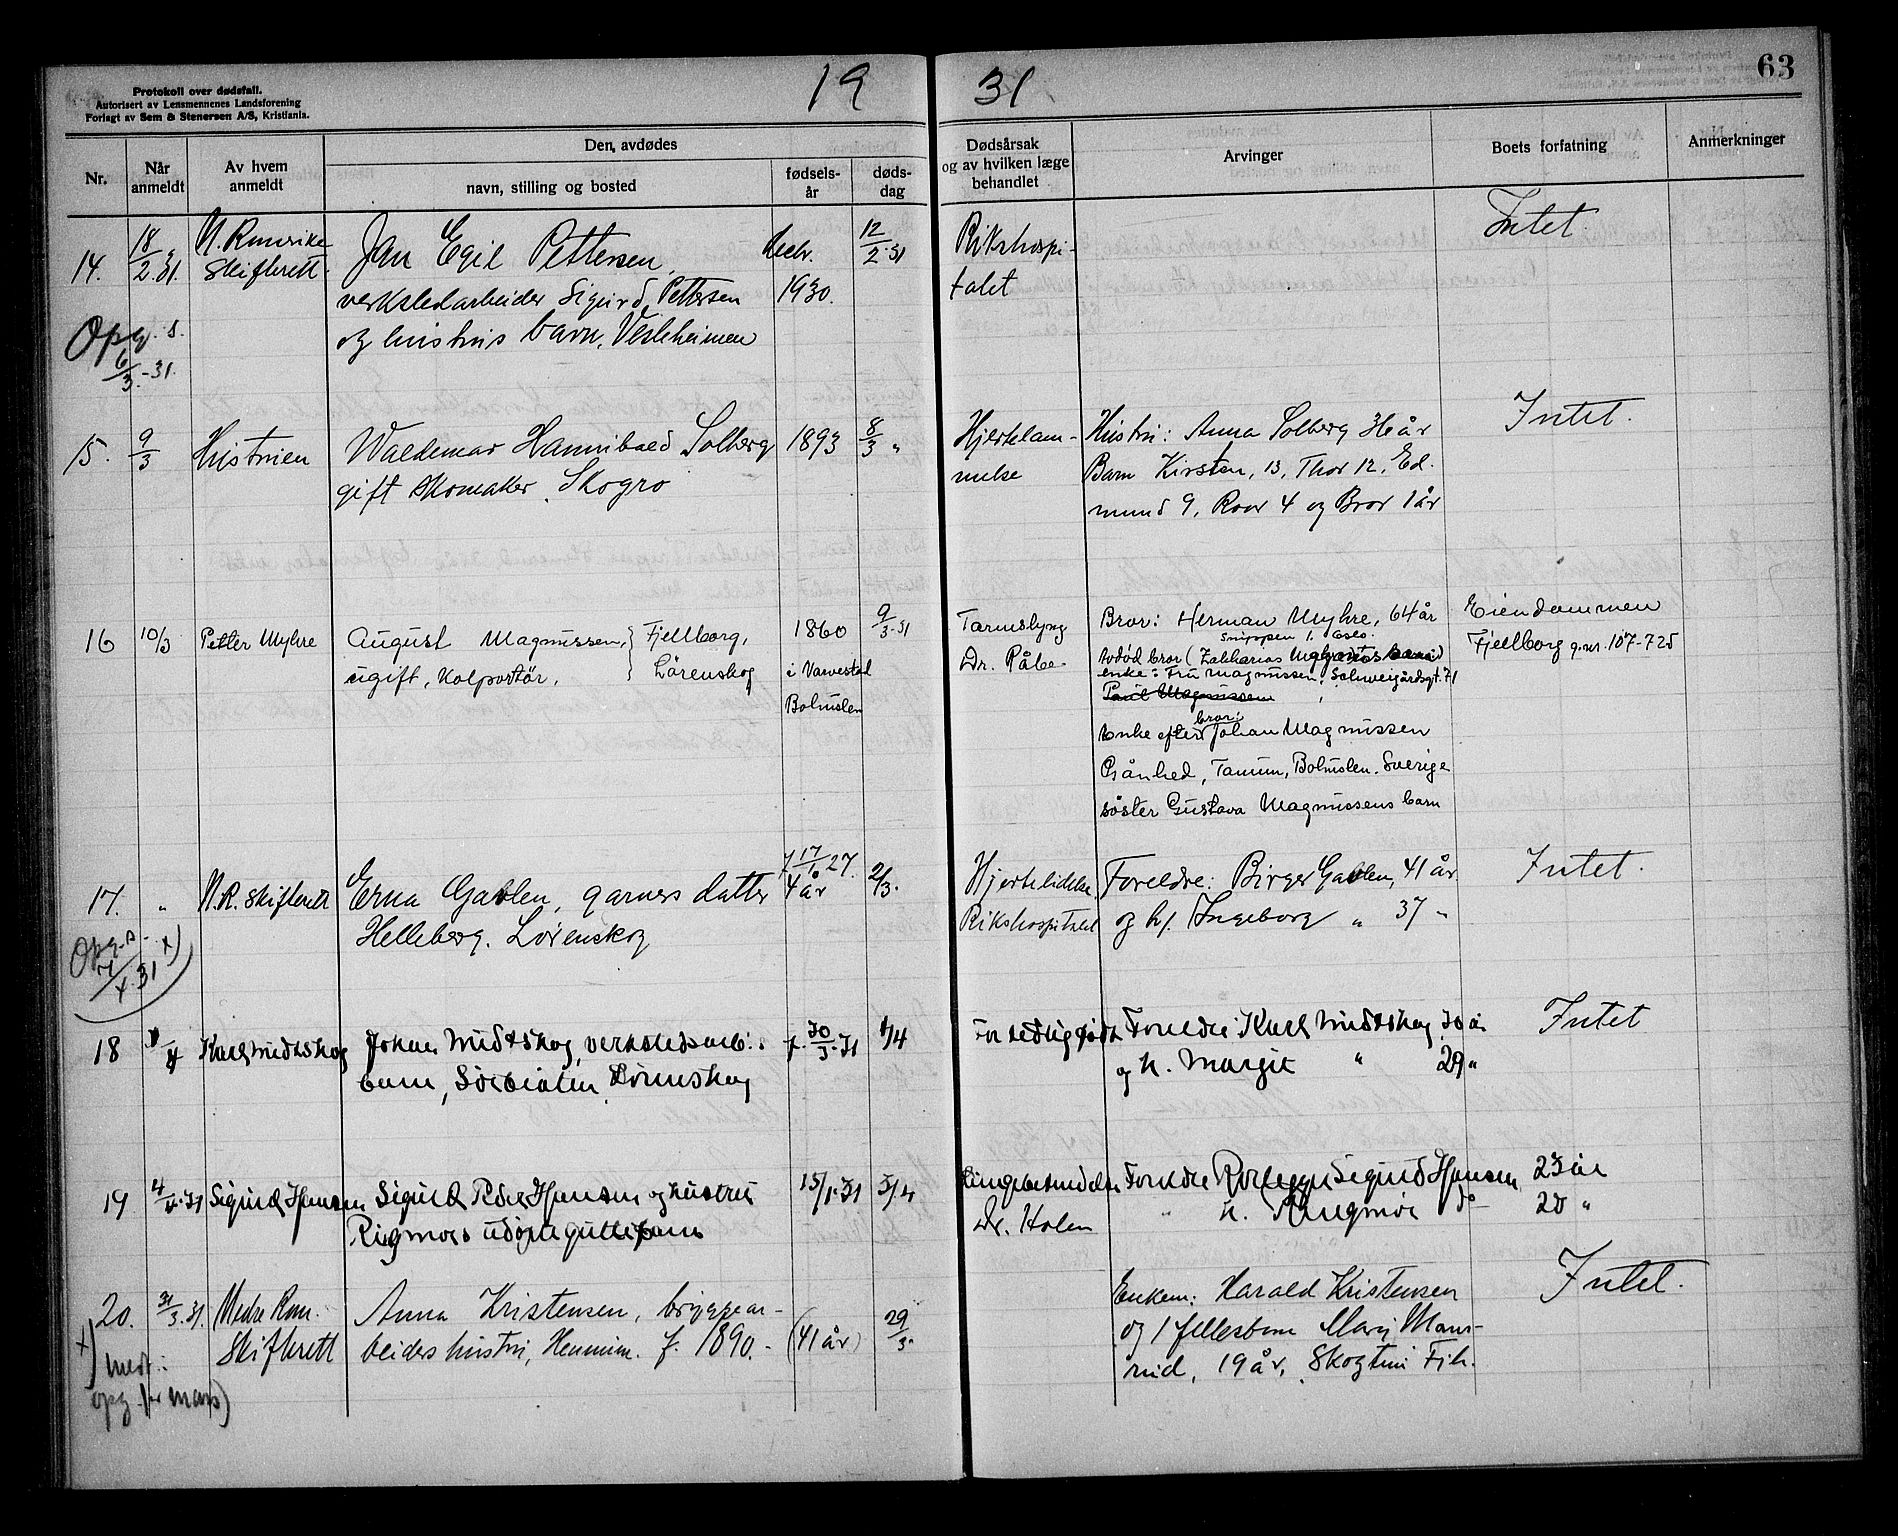 Protokoll over dødsfall.
Autorisert av Lensmennenes Landsforening
Forlagt av Sem & Stenersen A/S, Kristiania.
19 31
63
Nr.
Når anmeldt
Av hvem anmeldt
Den, avdødes
navn, stilling og bosted
fødsels-år
døds-dag
Dødsårsak og av hvilken læge behandlet
Arvinger
Boets forfatning
Anmerkninger
14. 18/2.31. N. Romerike Jan Egil Pettersen, 1930. 12/2.31 Rikshospi- Intet.
Skifterett. verkstedarbeider Sigurd Pettersen talet
og hustrus barn, Vesleheimen
Opg. s.
6/3.-31.
15. 9/3 Hustruen Waldemar Hannibald Solberg 1893 8/3 " Hjertelam- Hustru: Anna Solberg 36 år Intet.
gift skomaker, Skogro melse Barn Kirsten, 13, Thor 12, Ed-
mund 9, Roar 4 og Bror 1 år
16 10/3 Petter Myhre August Magnussen, Fjellborg, 1860 9/3.31 Tarmslyng Bror: Herman Myhre, 64 år Eiendommen
ugift, Kolportør, Lörenskog i Dr. Råbe. Oslo. Fjellborg g.nr. 107-725
avdöd bror (Zakkarias
Bohuslen enke: Fru Magnussen, Schweigårdsgt. 71
Paul Magnussen
bror:
Enke efter Johan Magnussen
Tanum, Bohuslen. Sverige
söster Gustava Magnussens barn
17. " N.R. Skifterett Erna Gablen, garners datter f. 17/10 27. 4 år 2/3. Hjertelidelse Foreldre: Birger Gablen, 41 år Intet.
Helleberg. Lørenskog Rikshospitalet og h/. Ingeborg " 37 "
Opg. s. x)
7/4.31
18 Karl Midtskog Johan Midtskog, verkstedsarb: f. 30/3.31 1/4 For tedlig födt Foreldre Karl Midtskog 30 år Intet
barn, Lörenskog og h. Margit " 29 "
19 4/4.31 Sigurd Hansen Sigurd Peder Hansen og hustru 15/1.31 3/4 Lungebetendelse Foreldre Sigurd Hansen 23 år
Rigmors udöpte guttebarn Dr. Holen " h. Rangmor do 20 "
20. 31/3.31. Nedre Rom. Anna Kristensen, bryggear- (41 år) 29/3 Enkem: Harald Kristensen Intet.
Skifterett beiders hustru, f. 1890.- og 1 fellesbarn Marj
rud, 19 år,
x) medt:
opg. for mars)